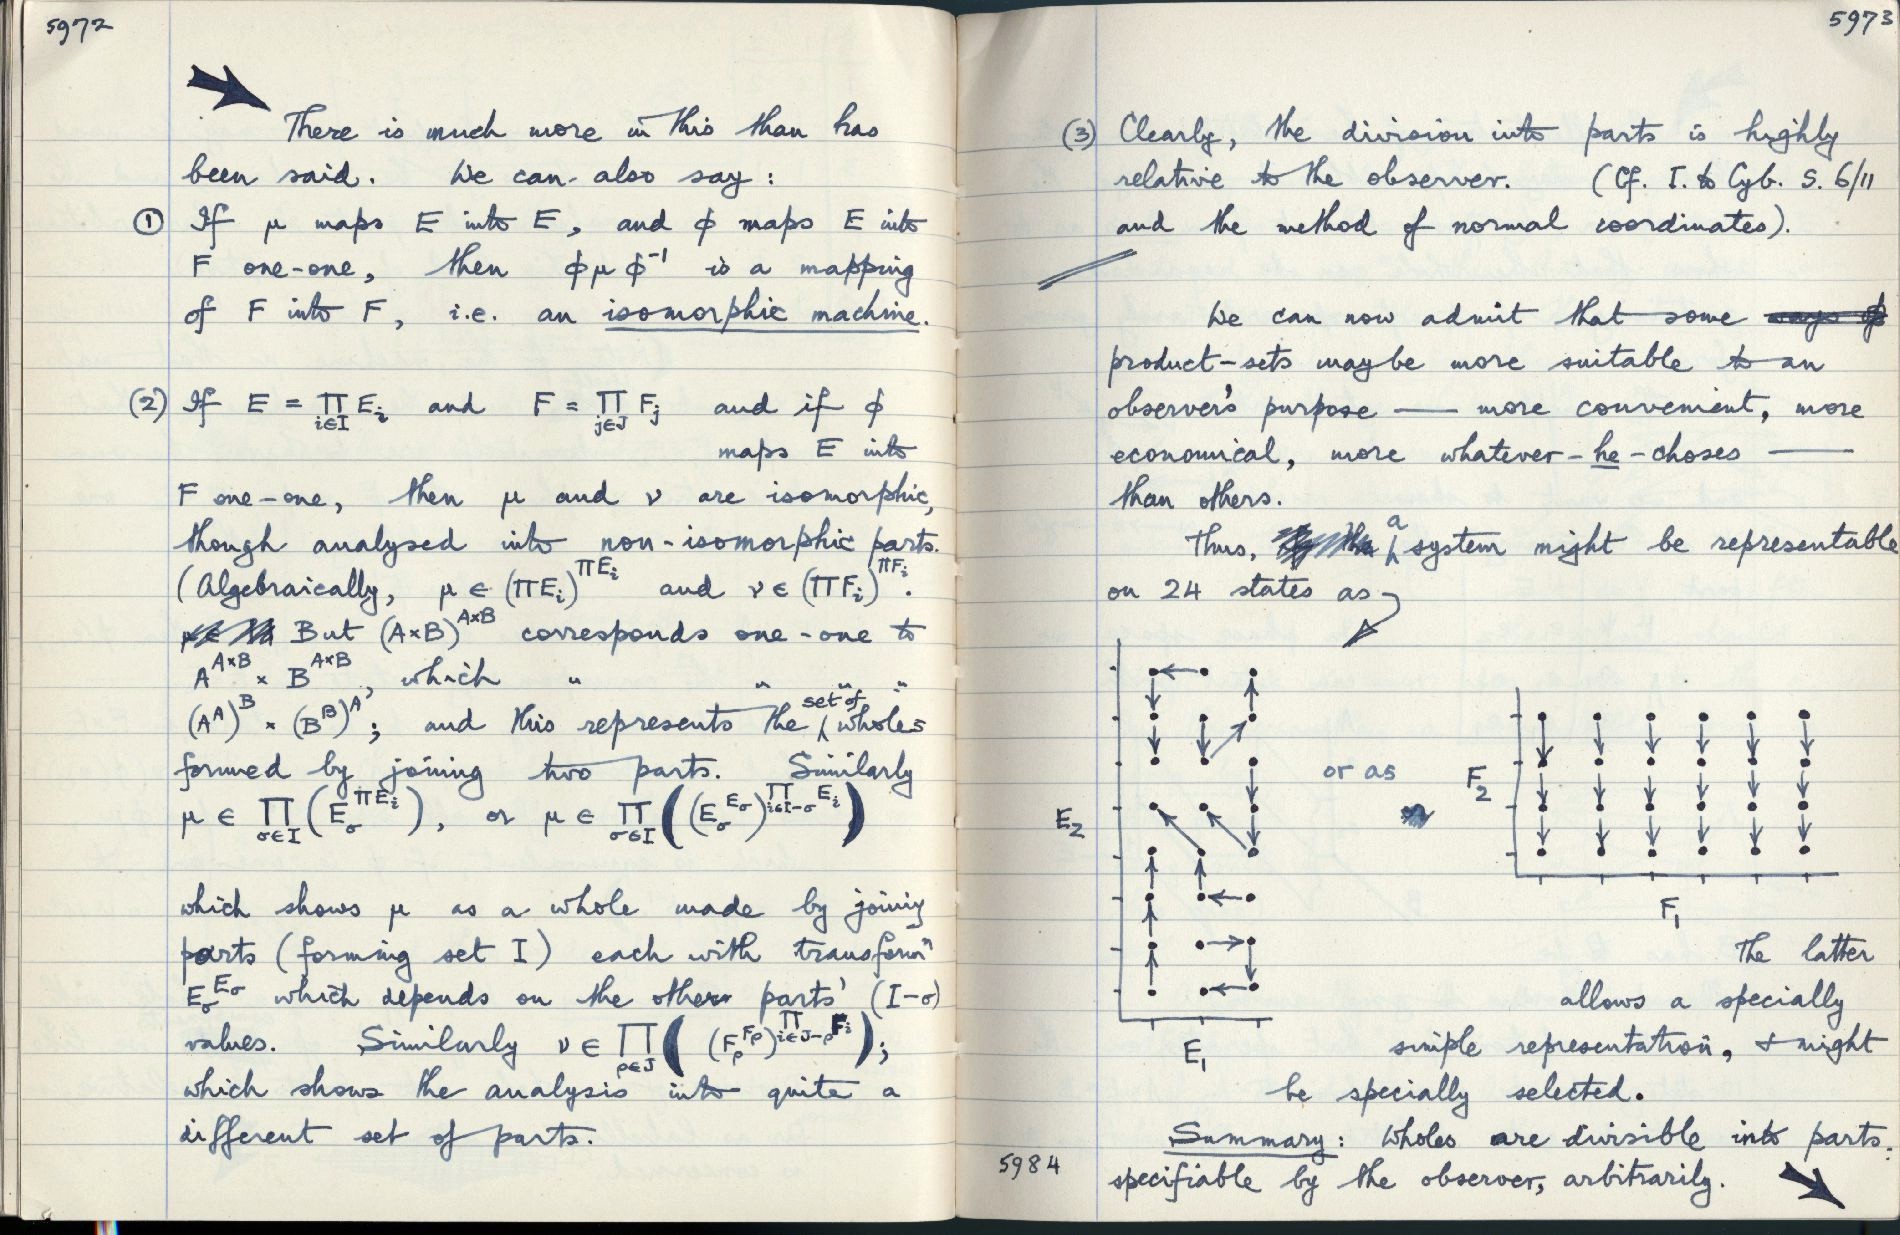 5972
There is much more in this than has
been said. We can also say:
① If μ maps E into E, and ϕ maps E into
F one-one, then ϕμϕ⁻¹ is a mapping
of F into F, i.e. an isomorphic machine.
(2) If E = ∏_{i∈I} E_i and F = ∏_{j∈J} F_j and if ϕ
maps E into
F one-one, then μ and ν are isomorphic,
though analysed into non-isomorphic parts.
(Algebraically, μ ∈ (ΠE_i)^{ΠE_i} and ν ∈ (ΠF_i)^{ΠF_i}.
But (A×B)^{A×B} corresponds one-one to
A^{A×B} × B^{A×B}, which " " " "
(A^A)^B × (B^B)^A; and this represents the set of wholes
formed by joining two parts. Similarly
μ ∈ ∏_{σ∈I} (E_σ^{ΠE_i}), or μ ∈ ∏_{σ∈I} ((E_σ^{E_σ})^{∏_{i∈I-σ} E_i})
which shows μ as a whole made by joining
parts (forming set I) each with transformⁿ
E_σ^{E_σ} which depends on the other parts' (I-σ)
values. Similarly ν ∈ ∏_{ρ∈J} ((F_ρ^{F_ρ})^{∏_{i∈J-ρ} F_i});
which shows the analysis into quite a
different set of parts.
5973
(3) Clearly, the division into parts is highly
relative to the observer. (Cf. I. to Cyb. S. 6/11
and the method of normal coordinates).
We can now admit that some ways of
product-sets maybe more suitable to an
observer's purpose — more convenient, more
economical, more whatever-he-choses —
than others.
Thus, a system might be representable
on 24 states as
E₂
E₁
or as
F₂
F₁
The latter
allows a specially
simple representation, & might
be specially selected.
Summary: Wholes are divisible into parts.
5984
specifiable by the observer, arbitrarily.